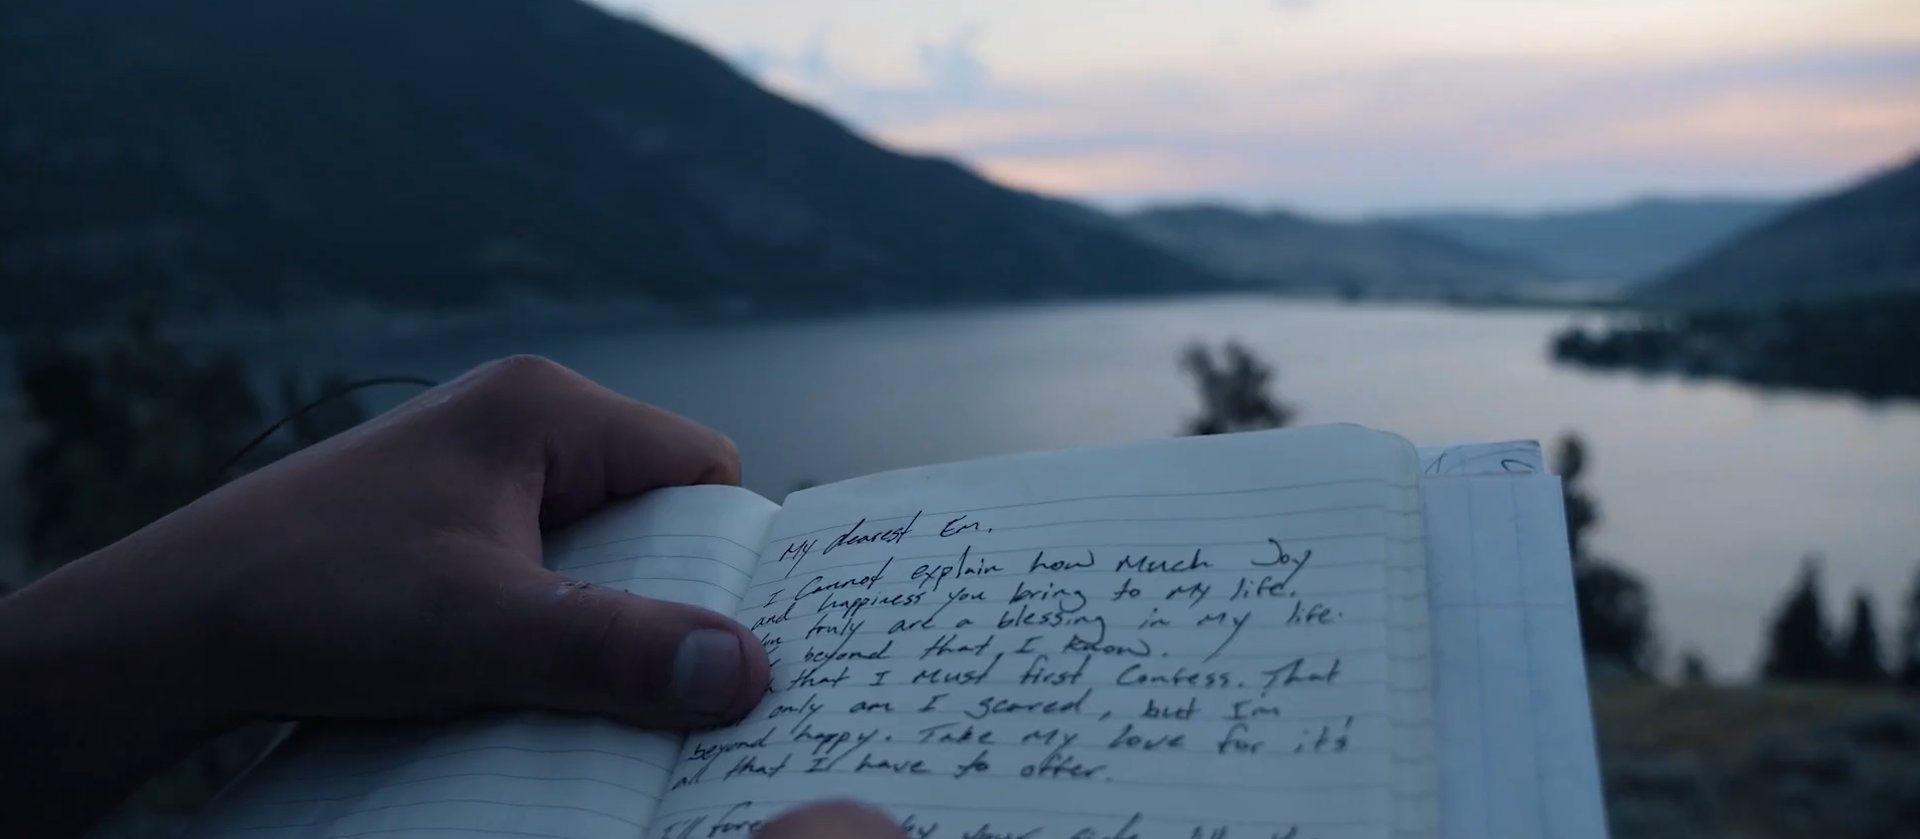 My dearest Em,
I Cannot explain how Much Joy
and happiness you bring to My life.
truly are a blessing in My life.
beyond that I know.
that I Must first Confess. That
only am I scared, but Im
beyond happy. Take My love for it's
all that I have to offer.
I'll by your side